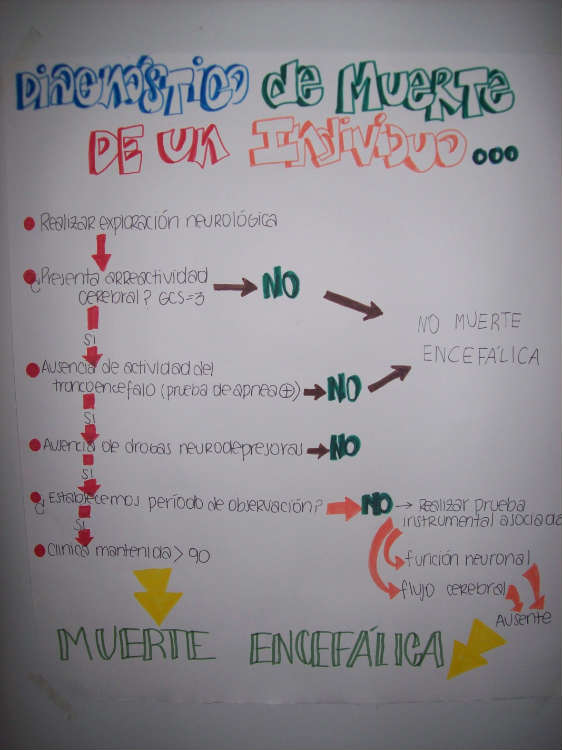 DIAGNÓSTICO de MUERTE
DE UN INDIVIDUO...
Realizar exploración neurológica
¿Presenta arreactividad
cerebral? GCS=3
NO
SI
NO MUERTE
ENCEFÁLICA
Ausencia de actividad del
troncoencefalo (prueba de apnea ⊕)
NO
SI
Ausencia de drogas neurodepresoras
NO
SI
¿Establecemos período de observación?
NO
→ Realizar prueba
instrumental asociada
SI
Clínica mantenida > 90
función neuronal
flujo cerebral
Ausente
MUERTE ENCEFÁLICA